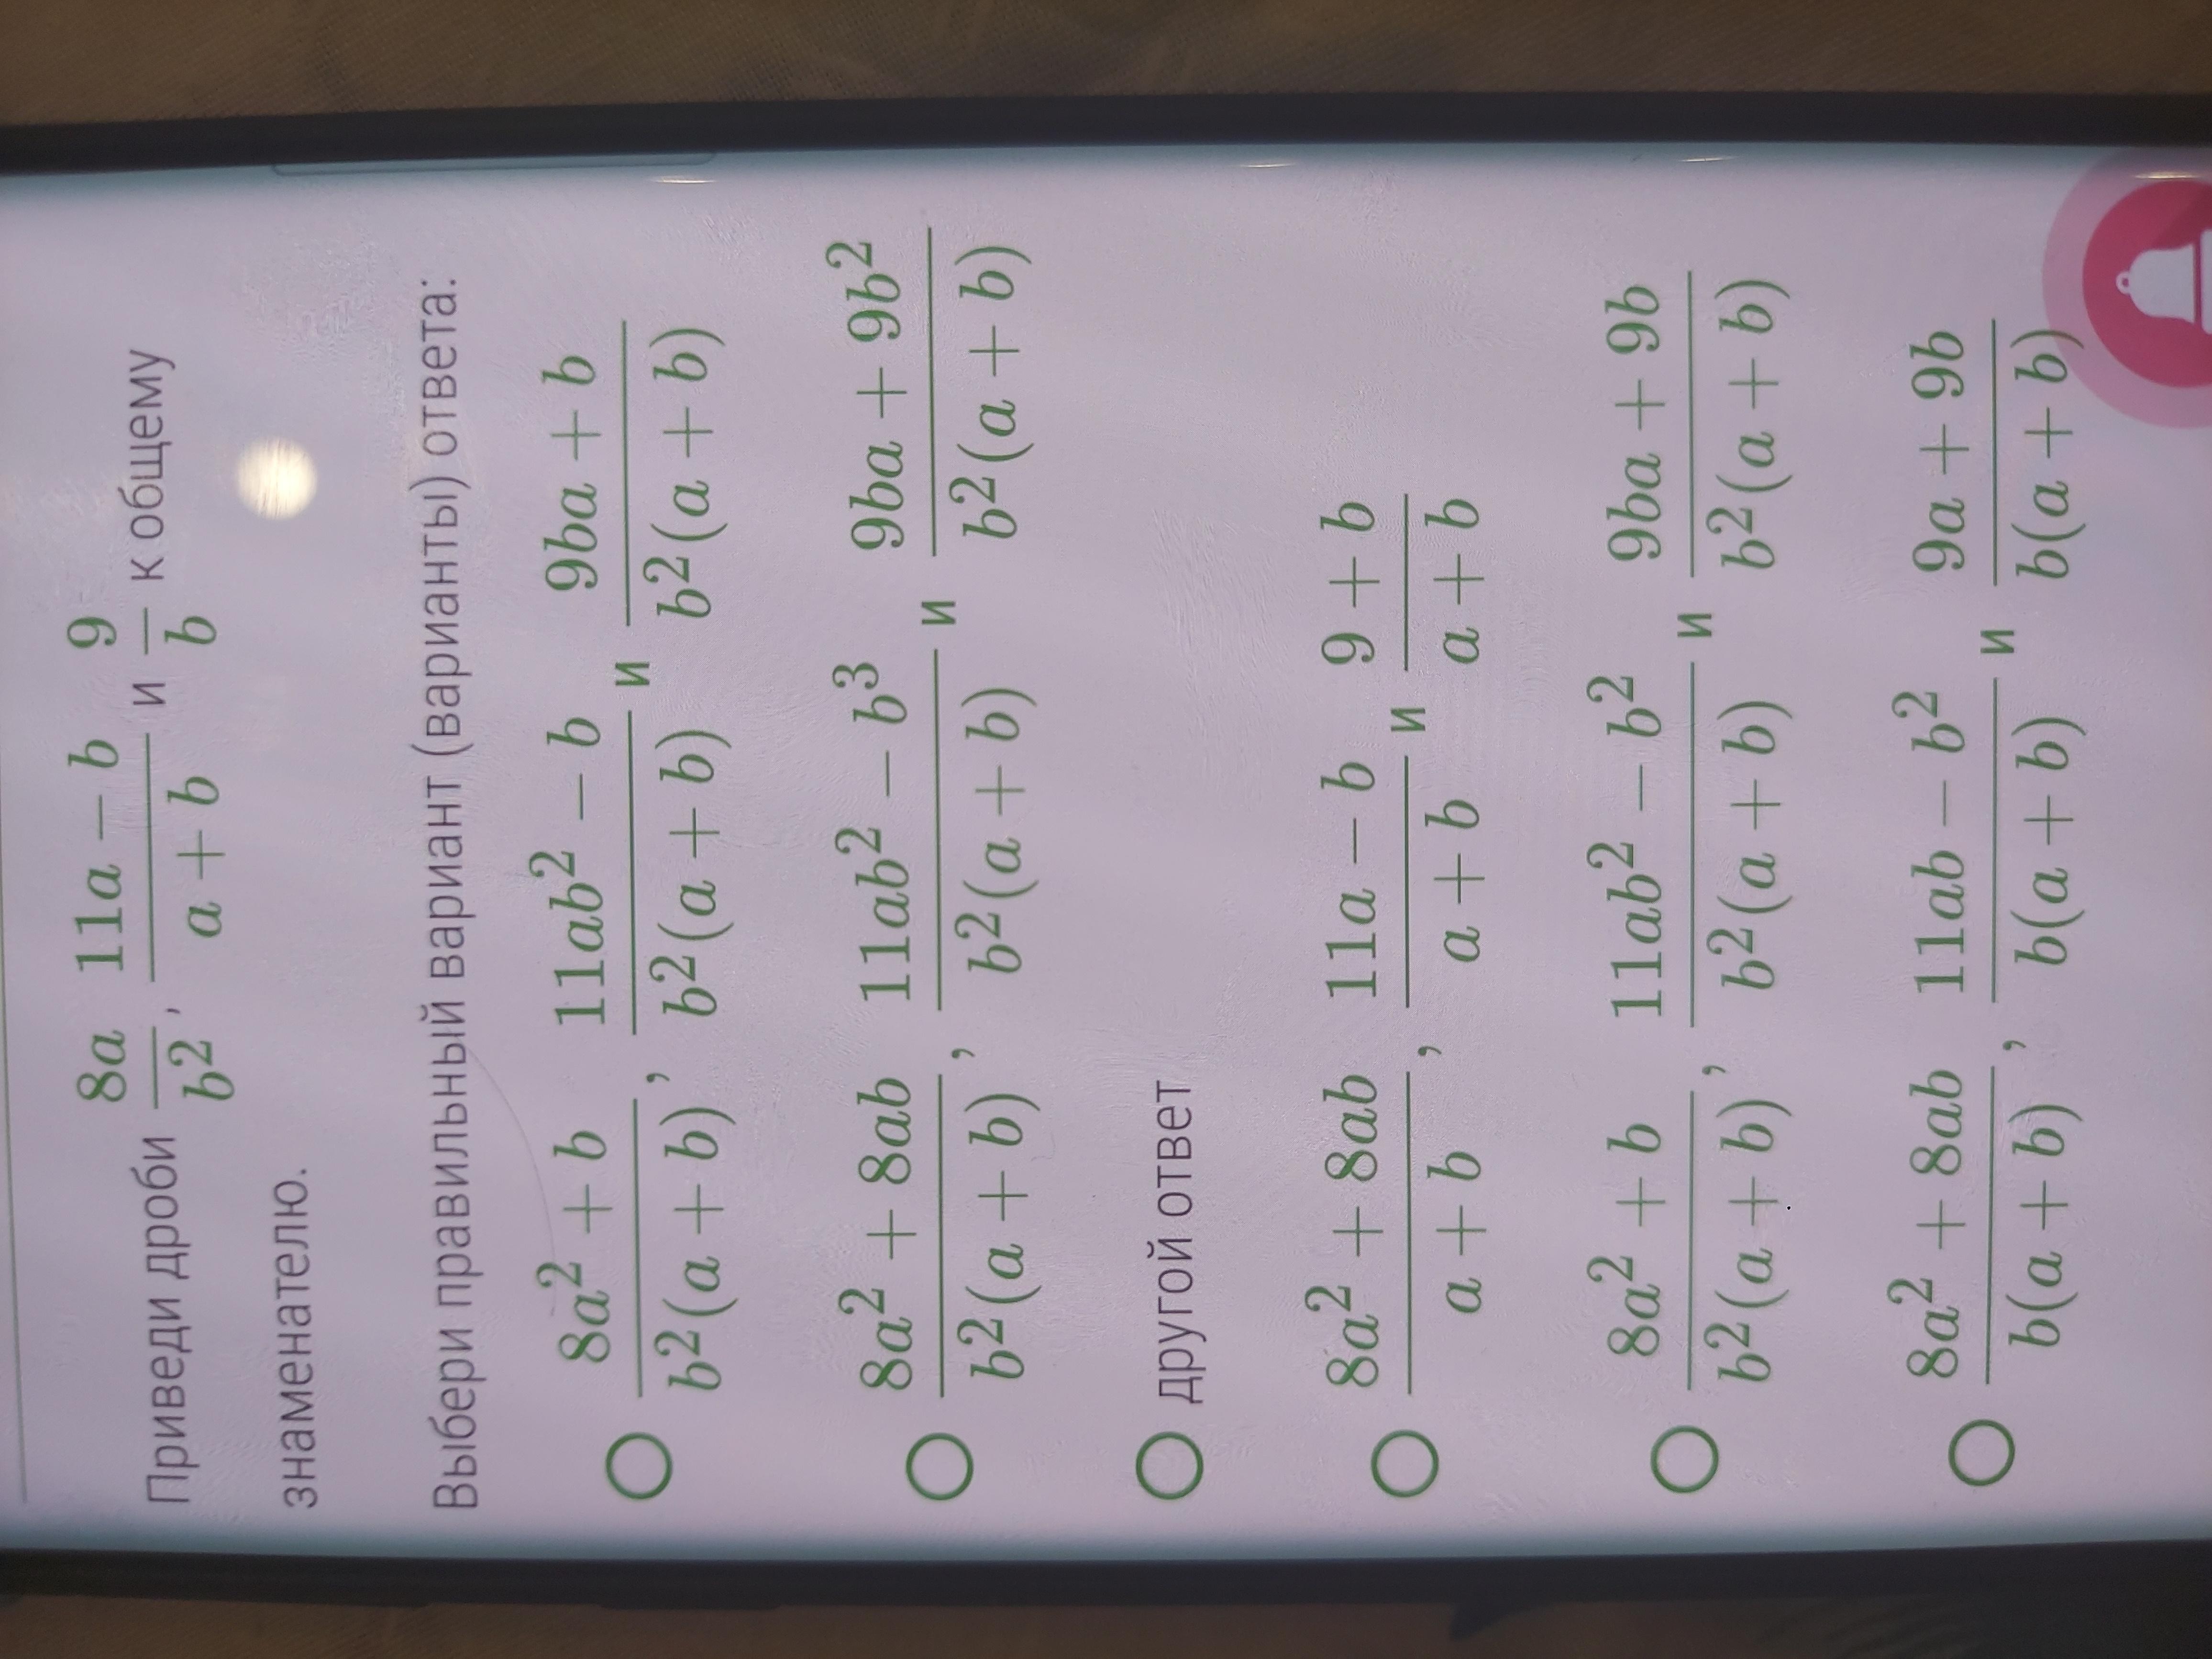 Приведи дроби 8a/b², (11a − b)/(a + b) и 9/b к общему
знаменателю.
Выбери правильный вариант (варианты) ответа:
(8a² + b)/(b²(a + b)), (11ab² − b)/(b²(a + b)) и (9ba + b)/(b²(a + b))
(8a² + 8ab)/(b²(a + b)), (11ab² − b³)/(b²(a + b)) и (9ba + 9b²)/(b²(a + b))
другой ответ
(8a² + 8ab)/(a + b), (11a − b)/(a + b) и (9 + b)/(a + b)
(8a² + b)/(b²(a + b)), (11ab² − b²)/(b²(a + b)) и (9ba + 9b)/(b²(a + b))
(8a² + 8ab)/(b(a + b)), (11ab − b²)/(b(a + b)) и (9a + 9b)/(b(a + b))